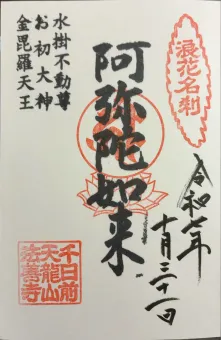 浪花名刹
令和七年
十月三十一日
阿弥陀如来
水掛不動尊
お初大神
金毘羅天王
千日前
天龍山
法善寺